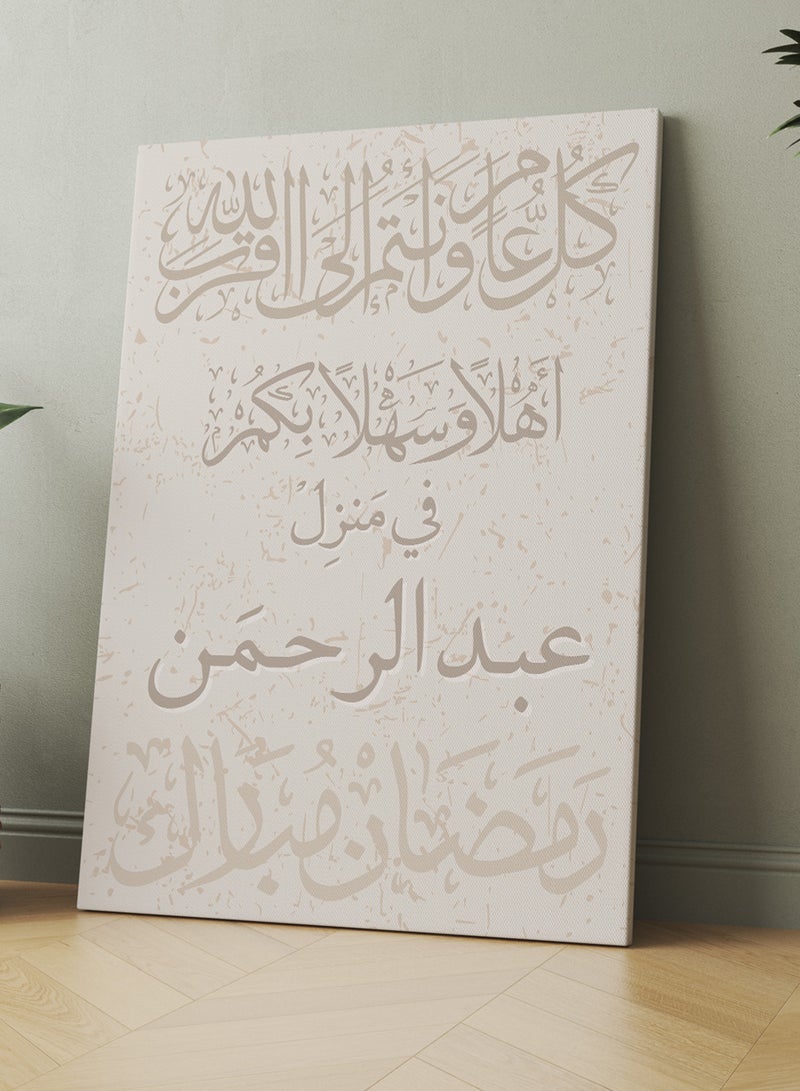 كُلُّ عَامٍ وَأَنْتُمْ إِلَى اللهِ أَقْرَبُ
أَهْلًا وَسَهْلًا بِكُمْ
في مَنزِلْ
عبد الرحمَن
رَمَضَانْ مُبَارَك